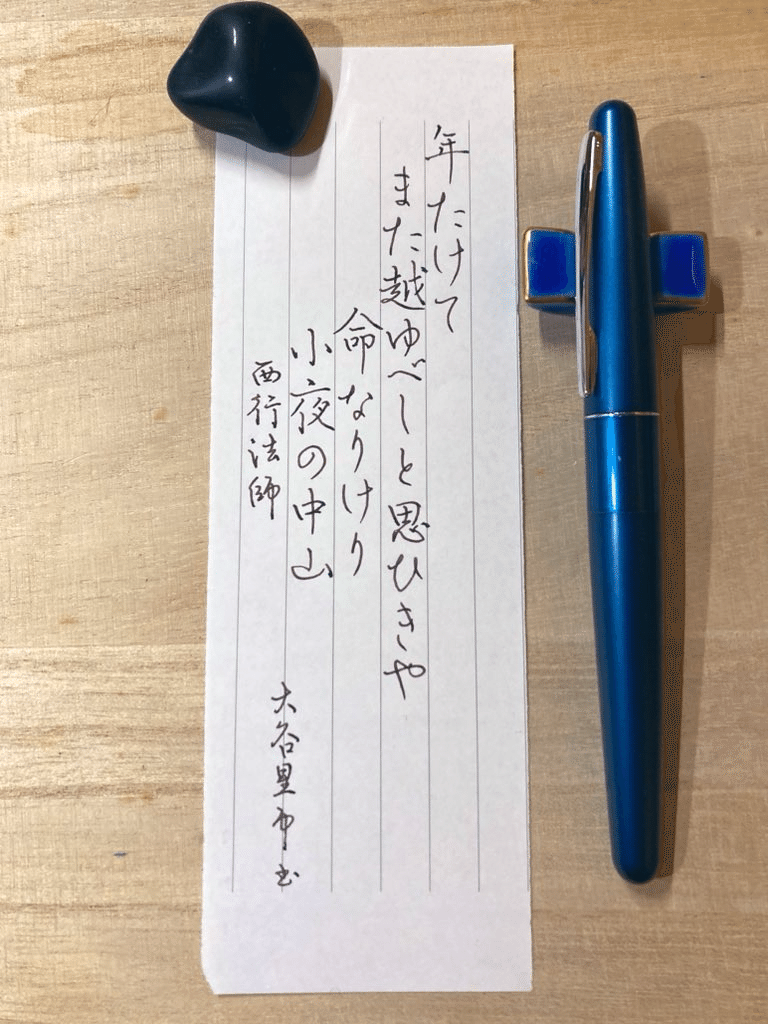 年たけて
また越ゆべしと思ひきや
命なりけり
小夜の中山
西行法師
木谷里